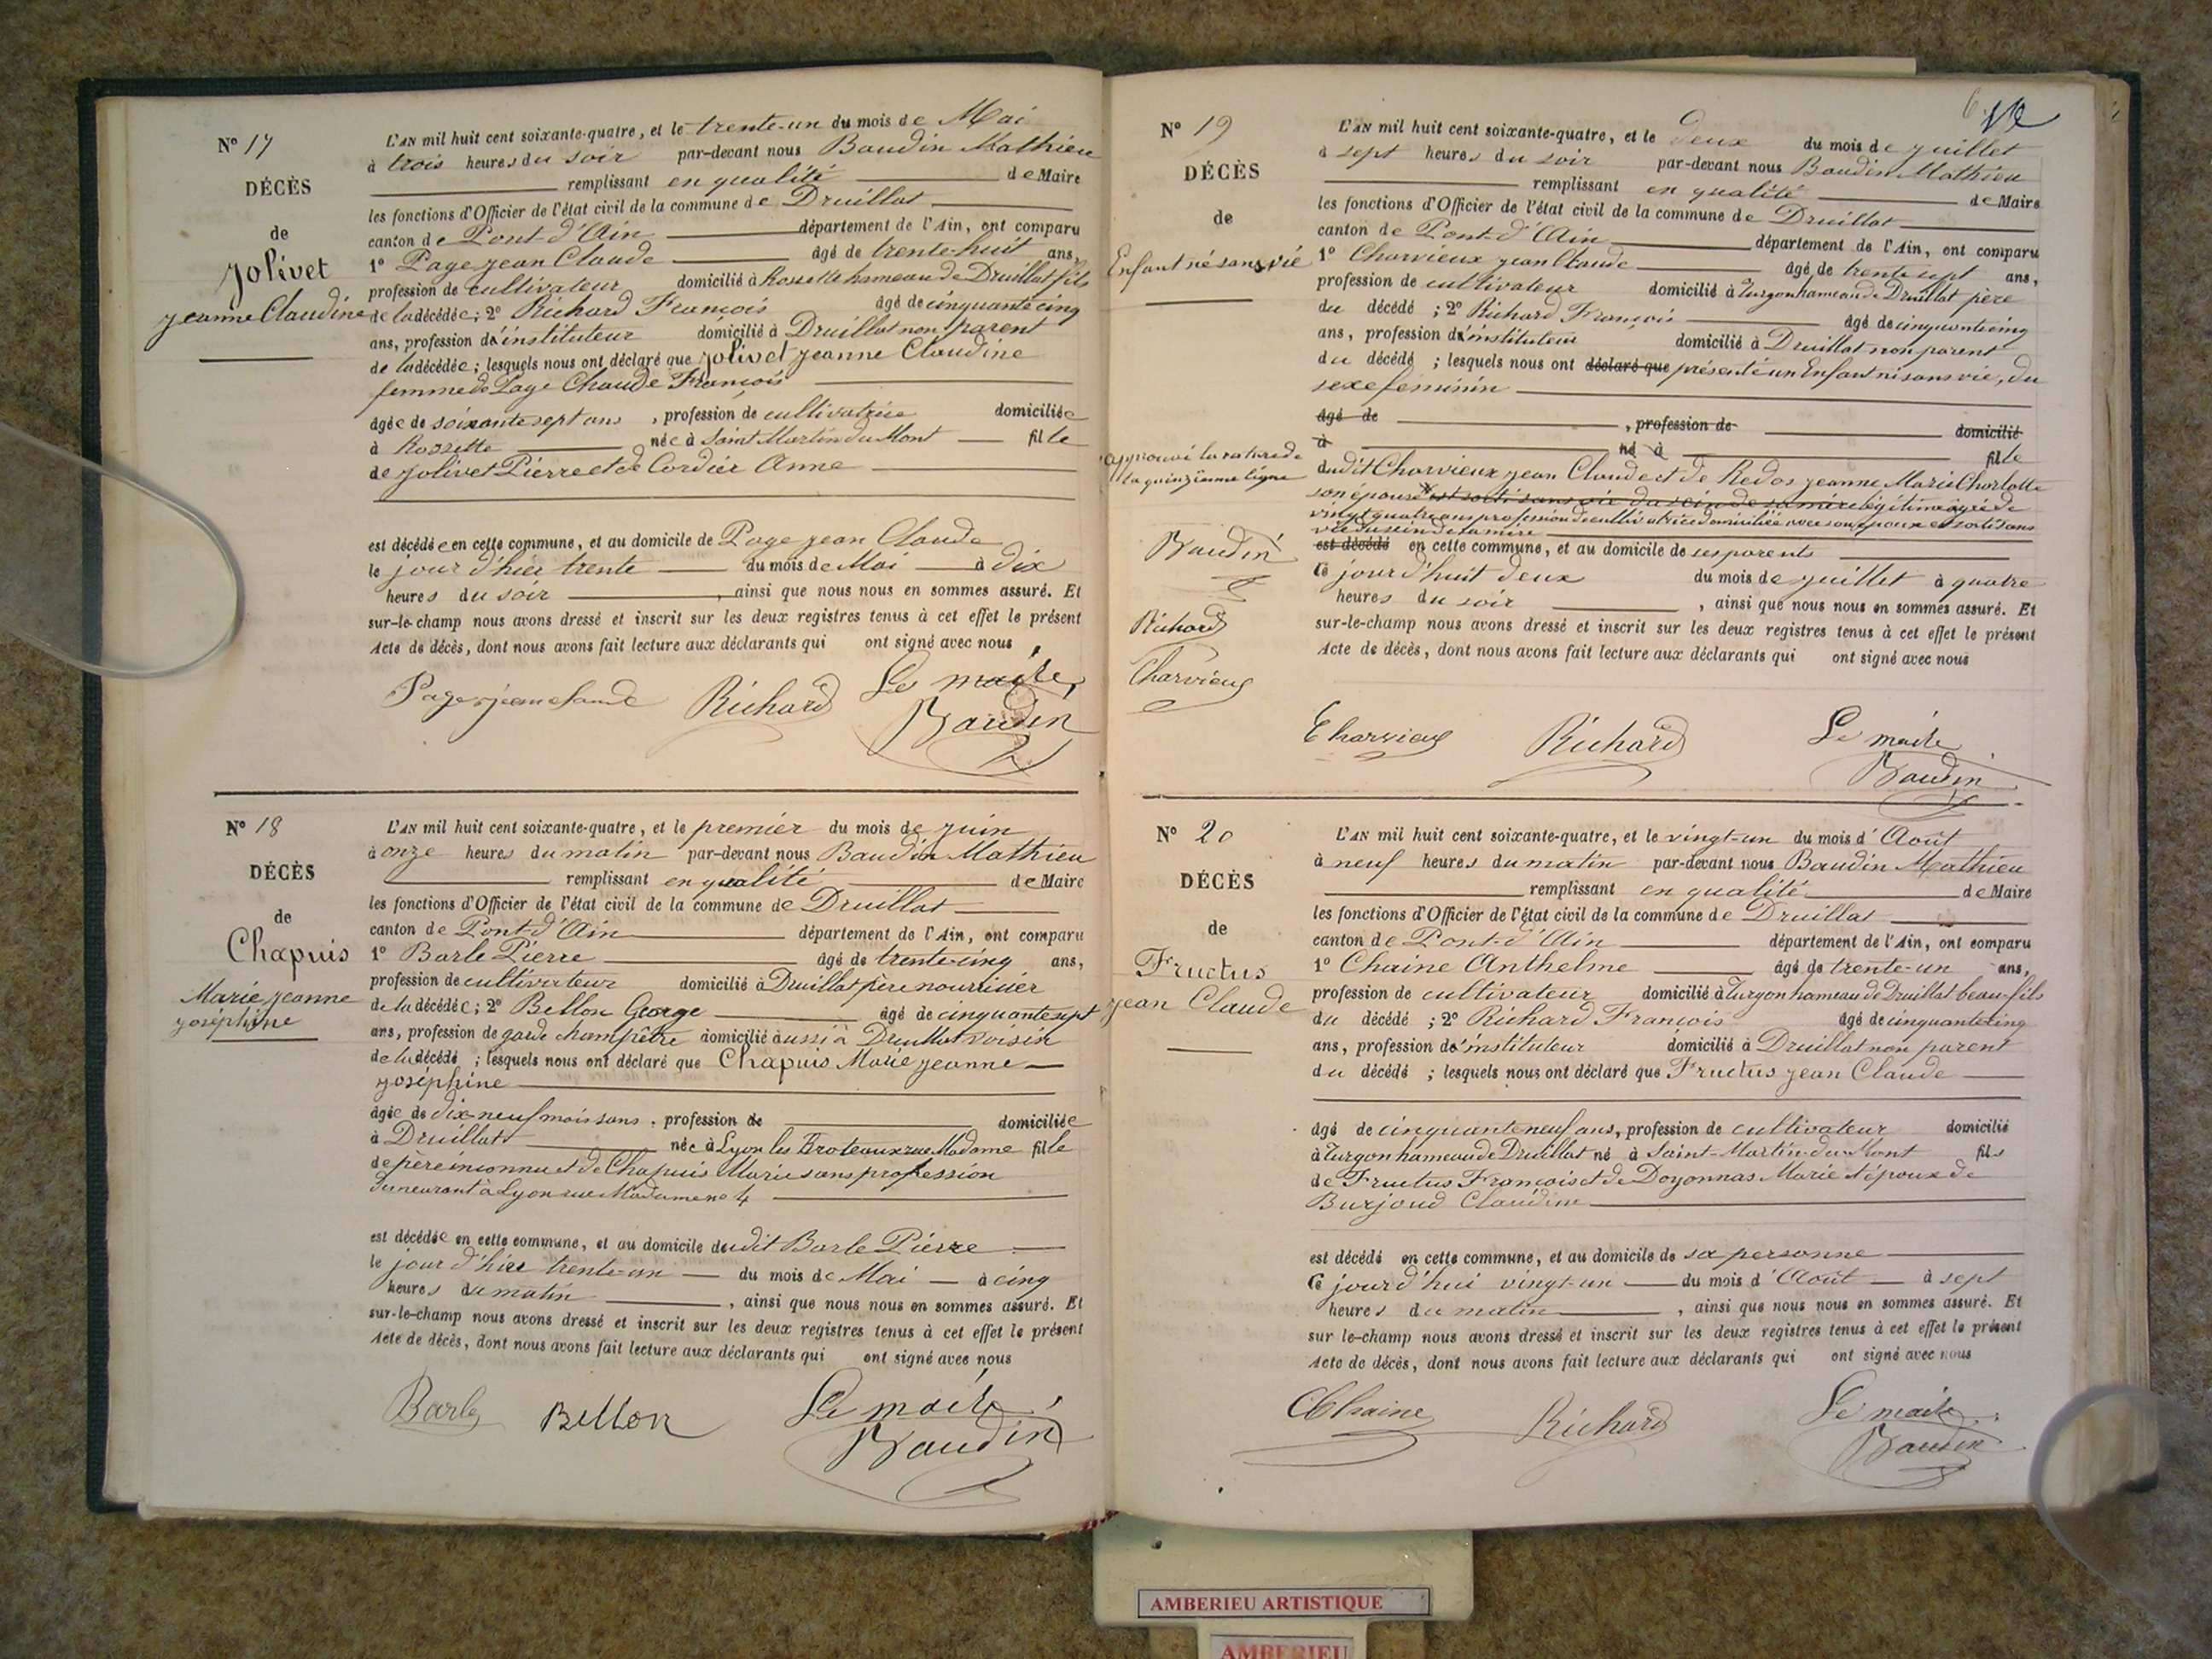 N° 17
DÉCÈS
de
Jolivet
Jeanne Claudine
L'AN mil huit cent soixante-quatre, et le trente-un du mois de Mai
à trois heures du soir par-devant nous Baudin Mathieu
remplissant en qualité de Maire
les fonctions d'Officier de l'état civil de la commune de Druillat
canton de Pont-d'Ain département de l'Ain, ont comparu
1° Page Jean Claude âgé de trente-huit ans,
profession de cultivateur domicilié à Rossette hameau de Druillat fils
de la décédée; 2° Richard François âgé de cinquante cinq
ans, profession d'instituteur domicilié à Druillat non parent
de la décédée; lesquels nous ont déclaré que Jolivet Jeanne Claudine
femme de Page Claude François
âgée de soixante sept ans, profession de cultivatrice domiciliée
à Rossette née à Saint Martin du Mont fille
de Jolivet Pierre et de Cordier Anne
est décédée en cette commune, et au domicile de Page Jean Claude
le jour d'hier trente du mois de Mai à dix
heures du soir, ainsi que nous nous en sommes assuré. Et
sur-le-champ nous avons dressé et inscrit sur les deux registres tenus à cet effet le présent
Acte de décès, dont nous avons fait lecture aux déclarants qui ont signé avec nous
Page jean claude Richard Le maire,
Baudin
N° 18
DÉCÈS
de
Chapuis
Marie Jeanne
Joséphine
L'AN mil huit cent soixante-quatre, et le premier du mois de Juin
à onze heures du matin par-devant nous Baudin Mathieu
remplissant en qualité de Maire
les fonctions d'Officier de l'état civil de la commune de Druillat
canton de Pont-d'Ain département de l'Ain, ont comparu
1° Barle Pierre âgé de trente-cinq ans,
profession de cultivateur domicilié à Druillat père nourricier
de la décédée; 2° Bellon George âgé de cinquante sept
ans, profession de garde champêtre domicilié aussi à Druillat voisin
de la décédé; lesquels nous ont déclaré que Chapuis Marie Jeanne
Joséphine
âgée de dix-neuf mois sans, profession de domiciliée
à Druillat née à Lyon les Broteaux rue Madame fille
de père inconnu et de Chapuis Marie sans profession
demeurant à Lyon rue Madame no 4
est décédée en cette commune, et au domicile dudit Barle Pierre
le jour d'hier trente-un du mois de Mai à cinq
heures du matin, ainsi que nous nous en sommes assuré. Et
sur-le-champ nous avons dressé et inscrit sur les deux registres tenus à cet effet le présent
Acte de décès, dont nous avons fait lecture aux déclarants qui ont signé avec nous
Barle Bellon Le maire,
Baudin
6.
N° 19
DÉCÈS
de
Enfant né sans vie
L'AN mil huit cent soixante-quatre, et le deux du mois de Juillet
à sept heures du soir par-devant nous Baudin Mathieu
remplissant en qualité de Maire
les fonctions d'Officier de l'état civil de la commune de Druillat
canton de Pont-d'Ain département de l'Ain, ont comparu
1° Charvieux Jean Claude âgé de trente sept ans,
profession de cultivateur domicilié à Turgon hameau de Druillat père
du décédé; 2° Richard François âgé de cinquante cinq
ans, profession d'instituteur domicilié à Druillat non parent
du décédé; lesquels nous ont déclaré que présenté un Enfant né sans vie, du
sexe feminin
âgé de, profession de domicilié
à né à fille
dudit Charvieux Jean Claude et de Redos Jeanne Marie Charlotte
son épouse est sorti sans vie du sein de sa mère légitime âgée de
vingt quatre ans profession de cultivatrice domiciliée avec son époux est sorti sans
vie du sein de sa mère
est décédé en cette commune, et au domicile de ses parents
Ce jourd'huit deux du mois de Juillet à quatre
heures du soir, ainsi que nous nous en sommes assuré. Et
sur-le-champ nous avons dressé et inscrit sur les deux registres tenus à cet effet le présent
Acte de décès, dont nous avons fait lecture aux déclarants qui ont signé avec nous
approuvé la rature de
la quinzième ligne
Baudin
Richard
Charvieux
Charvieux Richard Le maire
Baudin
N° 20
DÉCÈS
de
Fructus
Jean Claude
L'AN mil huit cent soixante-quatre, et le vingt-un du mois d'Août
à neuf heures du matin par-devant nous Baudin Mathieu
remplissant en qualité de Maire
les fonctions d'Officier de l'état civil de la commune de Druillat
canton de Pont-d'Ain département de l'Ain, ont comparu
1° Chaine Anthelme âgé de trente-un ans,
profession de cultivateur domicilié à Turgon hameau de Druillat beau-fils
du décédé; 2° Richard François âgé de cinquante-cinq
ans, profession d'instituteur domicilié à Druillat non parent
du décédé; lesquels nous ont déclaré que Fructus Jean Claude
âgé de cinquante neuf ans, profession de cultivateur domicilié
à Turgon hameau de Druillat né à Saint-Martin-du-Mont fils
de Fructus François et de Doyonnas Marie et époux de
Burjoud Claudine
est décédé en cette commune, et au domicile de sa personne
Ce jourd'hui vingt-un du mois d'Août à sept
heures du matin, ainsi que nous nous en sommes assuré. Et
sur le-champ nous avons dressé et inscrit sur les deux registres tenus à cet effet le présent
Acte de décès, dont nous avons fait lecture aux déclarants qui ont signé avec nous
Chaine Richard Le maire
Baudin
AMBERIEU ARTISTIQUE
AMBERIEU